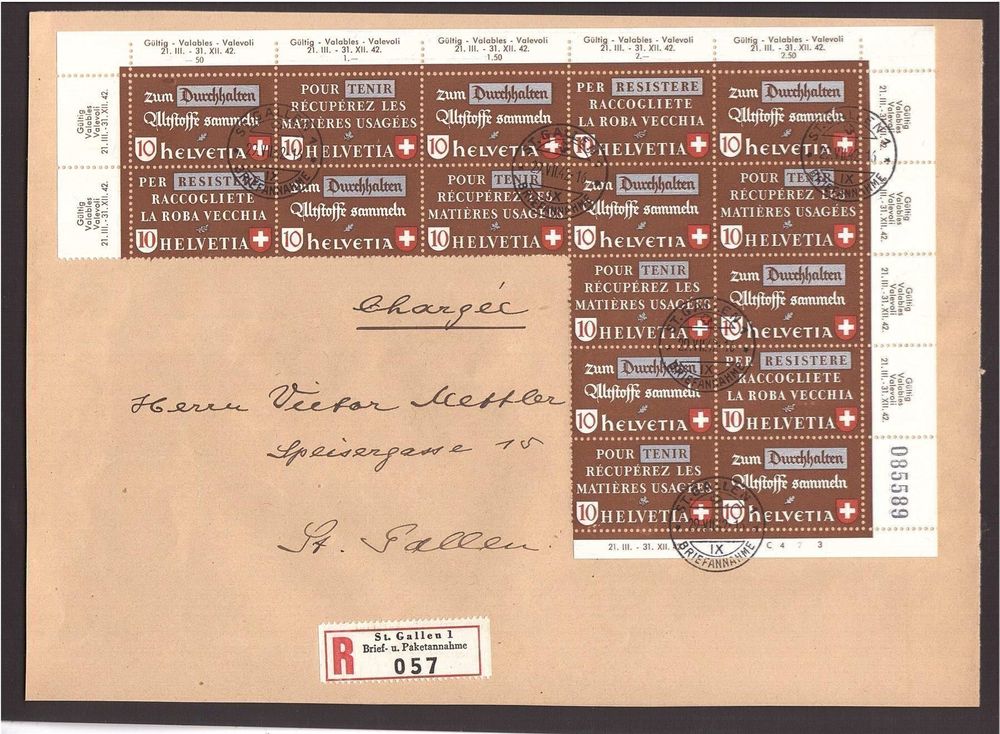 Gültig - Valables - Valevoli
21. III. - 31. XII. 42.
— 50
Gültig - Valables - Valevoli
21. III. - 31. XII. 42.
1.—
Gültig - Valables - Valevoli
21. III. - 31. XII. 42.
1.50
Gültig - Valables - Valevoli
21. III. - 31. XII. 42.
2.—
Gültig - Valables - Valevoli
21. III. - 31. XII. 42.
2.50
Gültig
Valables
Valevoli
21. III. - 31. XII. 42.
zum Durchhalten
Altstoffe sammeln
10 HELVETIA
POUR TENIR
RÉCUPÉREZ LES
MATIÈRES USAGÉES
10 HELVETIA
zum Durchhalten
Altstoffe sammeln
10 HELVETIA
PER RESISTERE
RACCOGLIETE
LA ROBA VECCHIA
10 HELVETIA
zum Durchhalten
Altstoffe sammeln
10 HELVETIA
Gültig
Valables
Valevoli
21. III. - 31. XII. 42.
Gültig
Valables
Valevoli
21. III. - 31. XII. 42.
PER RESISTERE
RACCOGLIETE
LA ROBA VECCHIA
10 HELVETIA
zum Durchhalten
Altstoffe sammeln
10 HELVETIA
POUR TENIR
RÉCUPÉREZ LES
MATIÈRES USAGÉES
10 HELVETIA
zum Durchhalten
Altstoffe sammeln
10 HELVETIA
POUR TENIR
RÉCUPÉREZ LES
MATIÈRES USAGÉES
10 HELVETIA
Gültig
Valables
Valevoli
21. III. - 31. XII. 42.
POUR TENIR
RÉCUPÉREZ LES
MATIÈRES USAGÉES
10 HELVETIA
zum Durchhalten
Altstoffe sammeln
10 HELVETIA
Gültig
Valables
Valevoli
21. III. - 31. XII. 42.
zum Durchhalten
Altstoffe sammeln
10 HELVETIA
PER RESISTERE
RACCOGLIETE
LA ROBA VECCHIA
10 HELVETIA
Gültig
Valables
Valevoli
21. III. - 31. XII. 42.
POUR TENIR
RÉCUPÉREZ LES
MATIÈRES USAGÉES
10 HELVETIA
zum Durchhalten
Altstoffe sammeln
10 HELVETIA
085589
21. III. - 31. XII. 4
C 4 7 3
ST. GALLEN
IX
BRIEFANNAHME
ST. GALLEN
IX
BRIEFANNAHME
ST. GALLEN
IX
BRIEFANNAHME
ST. GALLEN
IX
BRIEFANNAHME
ST. GALLEN
IX
BRIEFANNAHME
Chargée
Herrn Victor Mettler
Speisergasse 15
St. Gallen.
R
St. Gallen 1
Brief- u. Paketannahme
057